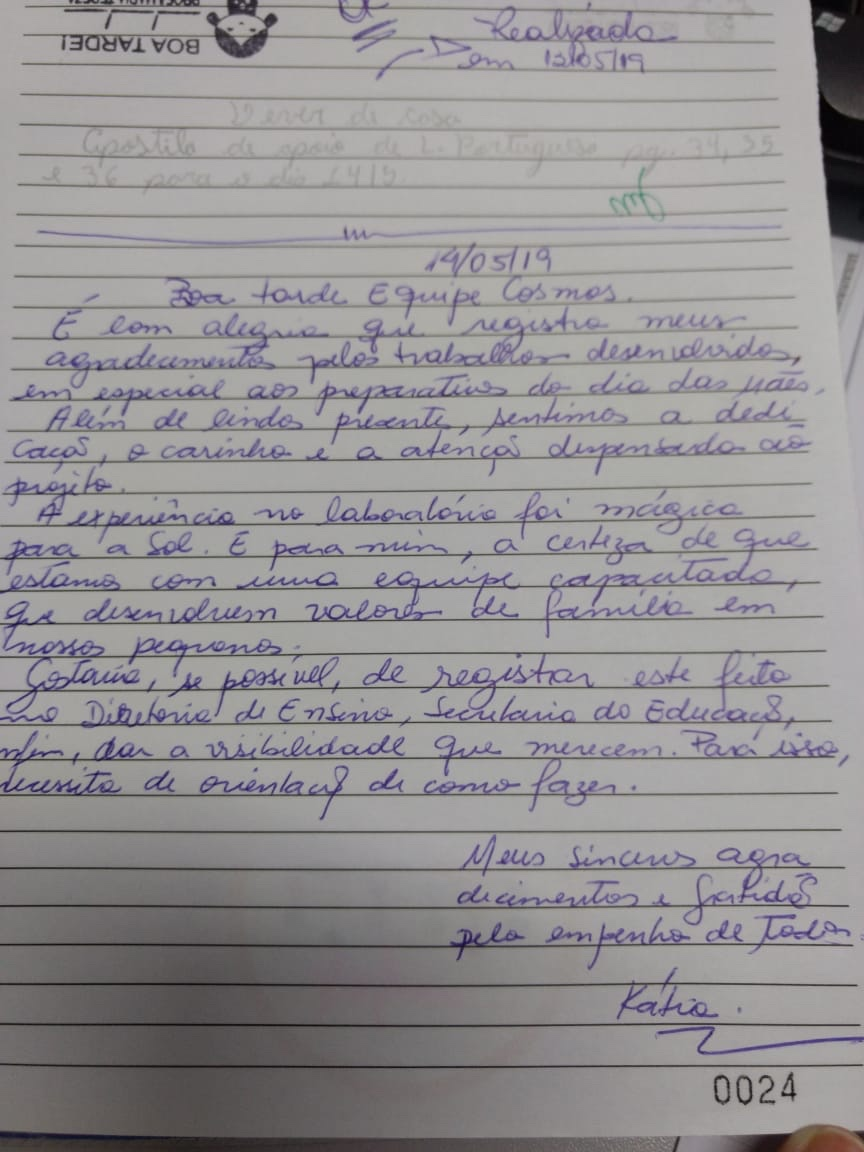 BOA TARDE!
Realizada
em 13/05/19
Dever de casa
Apostila de apoio de L. Portuguesa pg. 34, 35
e 36 para o dia 14/5.
14/05/19
Boa tarde Equipe Cosmos.
É com alegria que registro meus
agradecimentos pelos trabalhos desenvolvidos,
em especial aos preparativos do dia das mães.
Além de lindo presente, sentimos a dedi
cação, o carinho e a atenção dispensada ao
projeto.
A experiência no laboratório foi mágica
para a Sol. E para mim, a certeza de que
estamos com uma equipe capacitada,
que desenvolvem valores de família em
nossos pequenos.
Gostaria, se possível, de registrar este feito
na Diretoria de Ensino, Secretaria da Educação,
enfim, dar a visibilidade que merecem. Para isso,
necessito de orientação de como fazer.
Meus sinceros agra
decimentos e gratidão
pelo empenho de todos.
Kátia.
0024